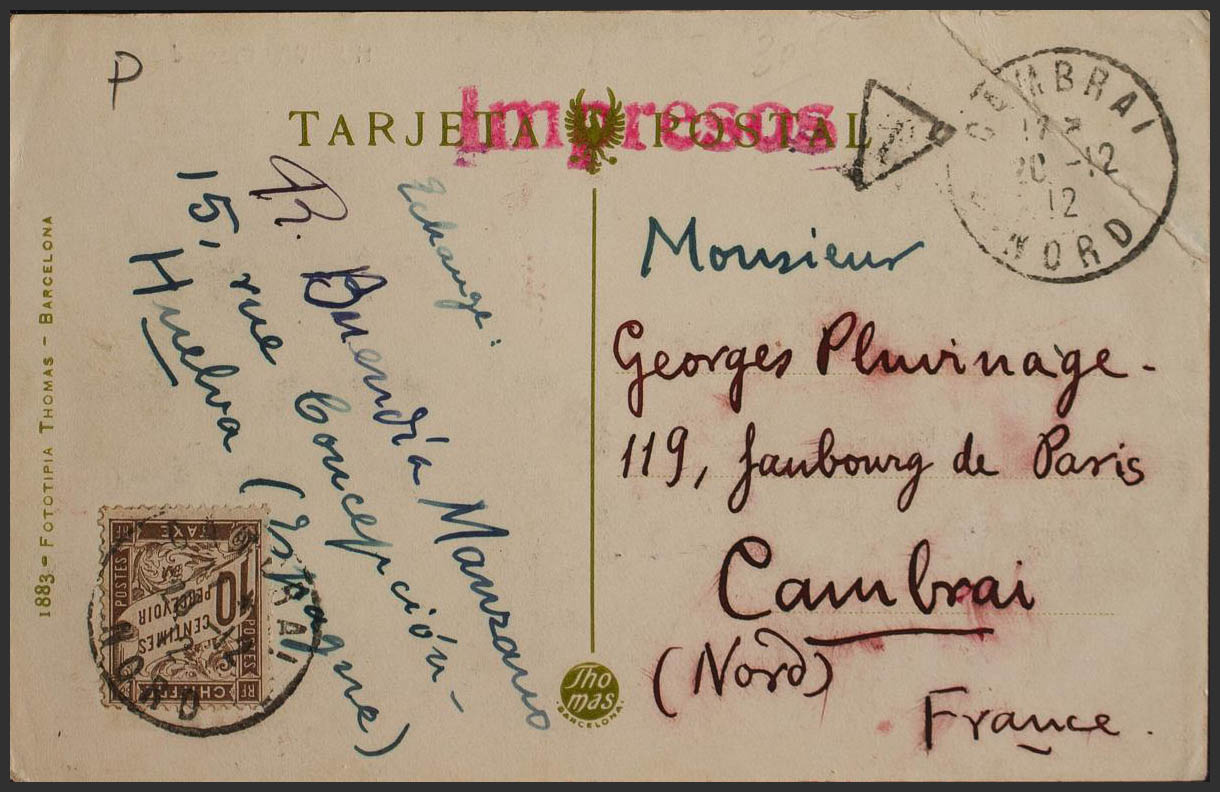 P
TARJETA POSTAL
Impresos
CAMBRAI
20 - 12
12
NORD
Echange:
R. Buendía Manzano
15, rue Concepción -
Huelva (Espagne)
Monsieur
Georges Pluvinage -
119, faubourg de Paris
Cambrai
(Nord)
France.
1883 - FOTOTIPIA THOMAS - BARCELONA
Thomas
BARCELONA
POSTES
RF
TAXE
10
CENTIMES
PERCEVOIR
POSTES
RF
CHIFFRE
NORD